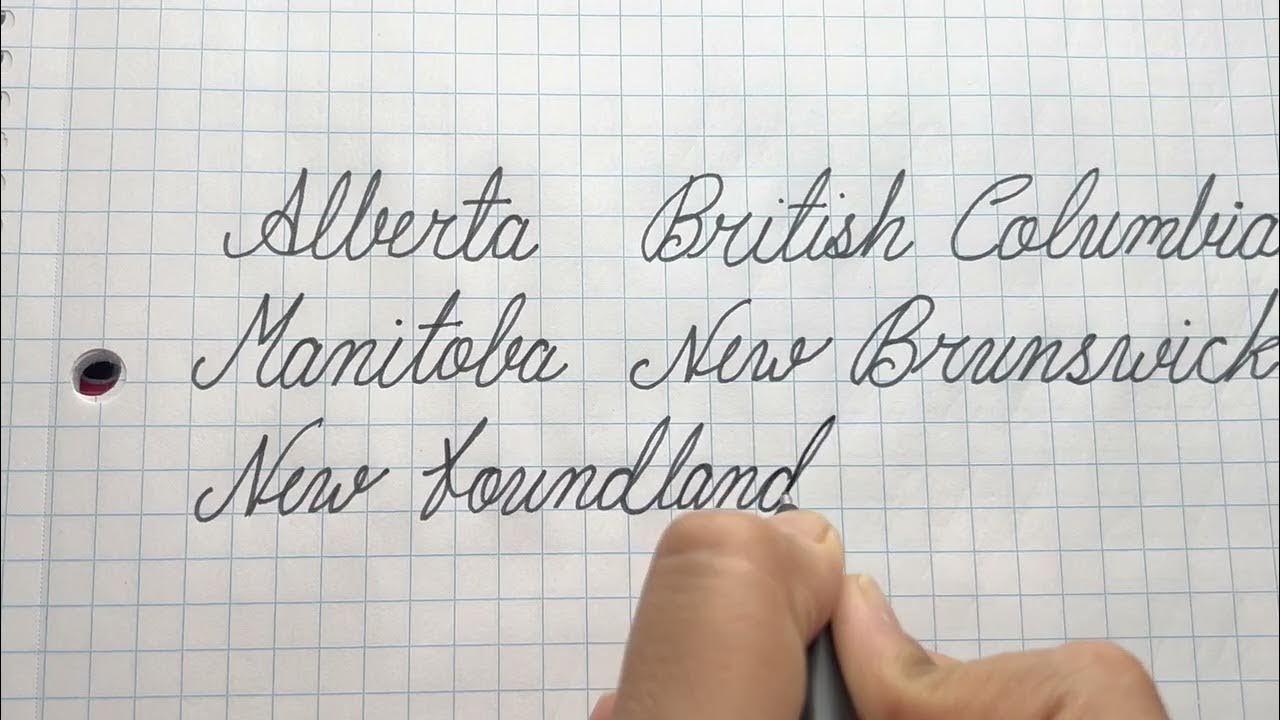 Alberta British Columbia
Manitoba New Brunswick
New Foundland